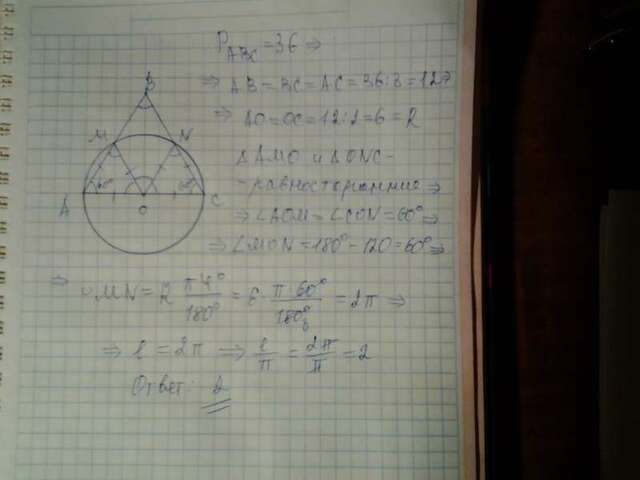 P ABC = 36 ⇒
⇒ AB = BC = AC = 36 : 3 = 12 ⇒
⇒ AO = OC = 12 : 2 = 6 = R
△AMO и △ONC –
– равносторонние ⇒
⇒ ∠AOM = ∠CON = 60° ⇒
⇒ ∠MON = 180° – 120 = 60° ⇒
B
M N
60° 60°
A O C
⇒ ◡MN = R π·4° / 180° = 6 · π·60° / 180° = 2π ⇒
⇒ l = 2π ⇒ l/π = 2π/π = 2
Ответ: 2